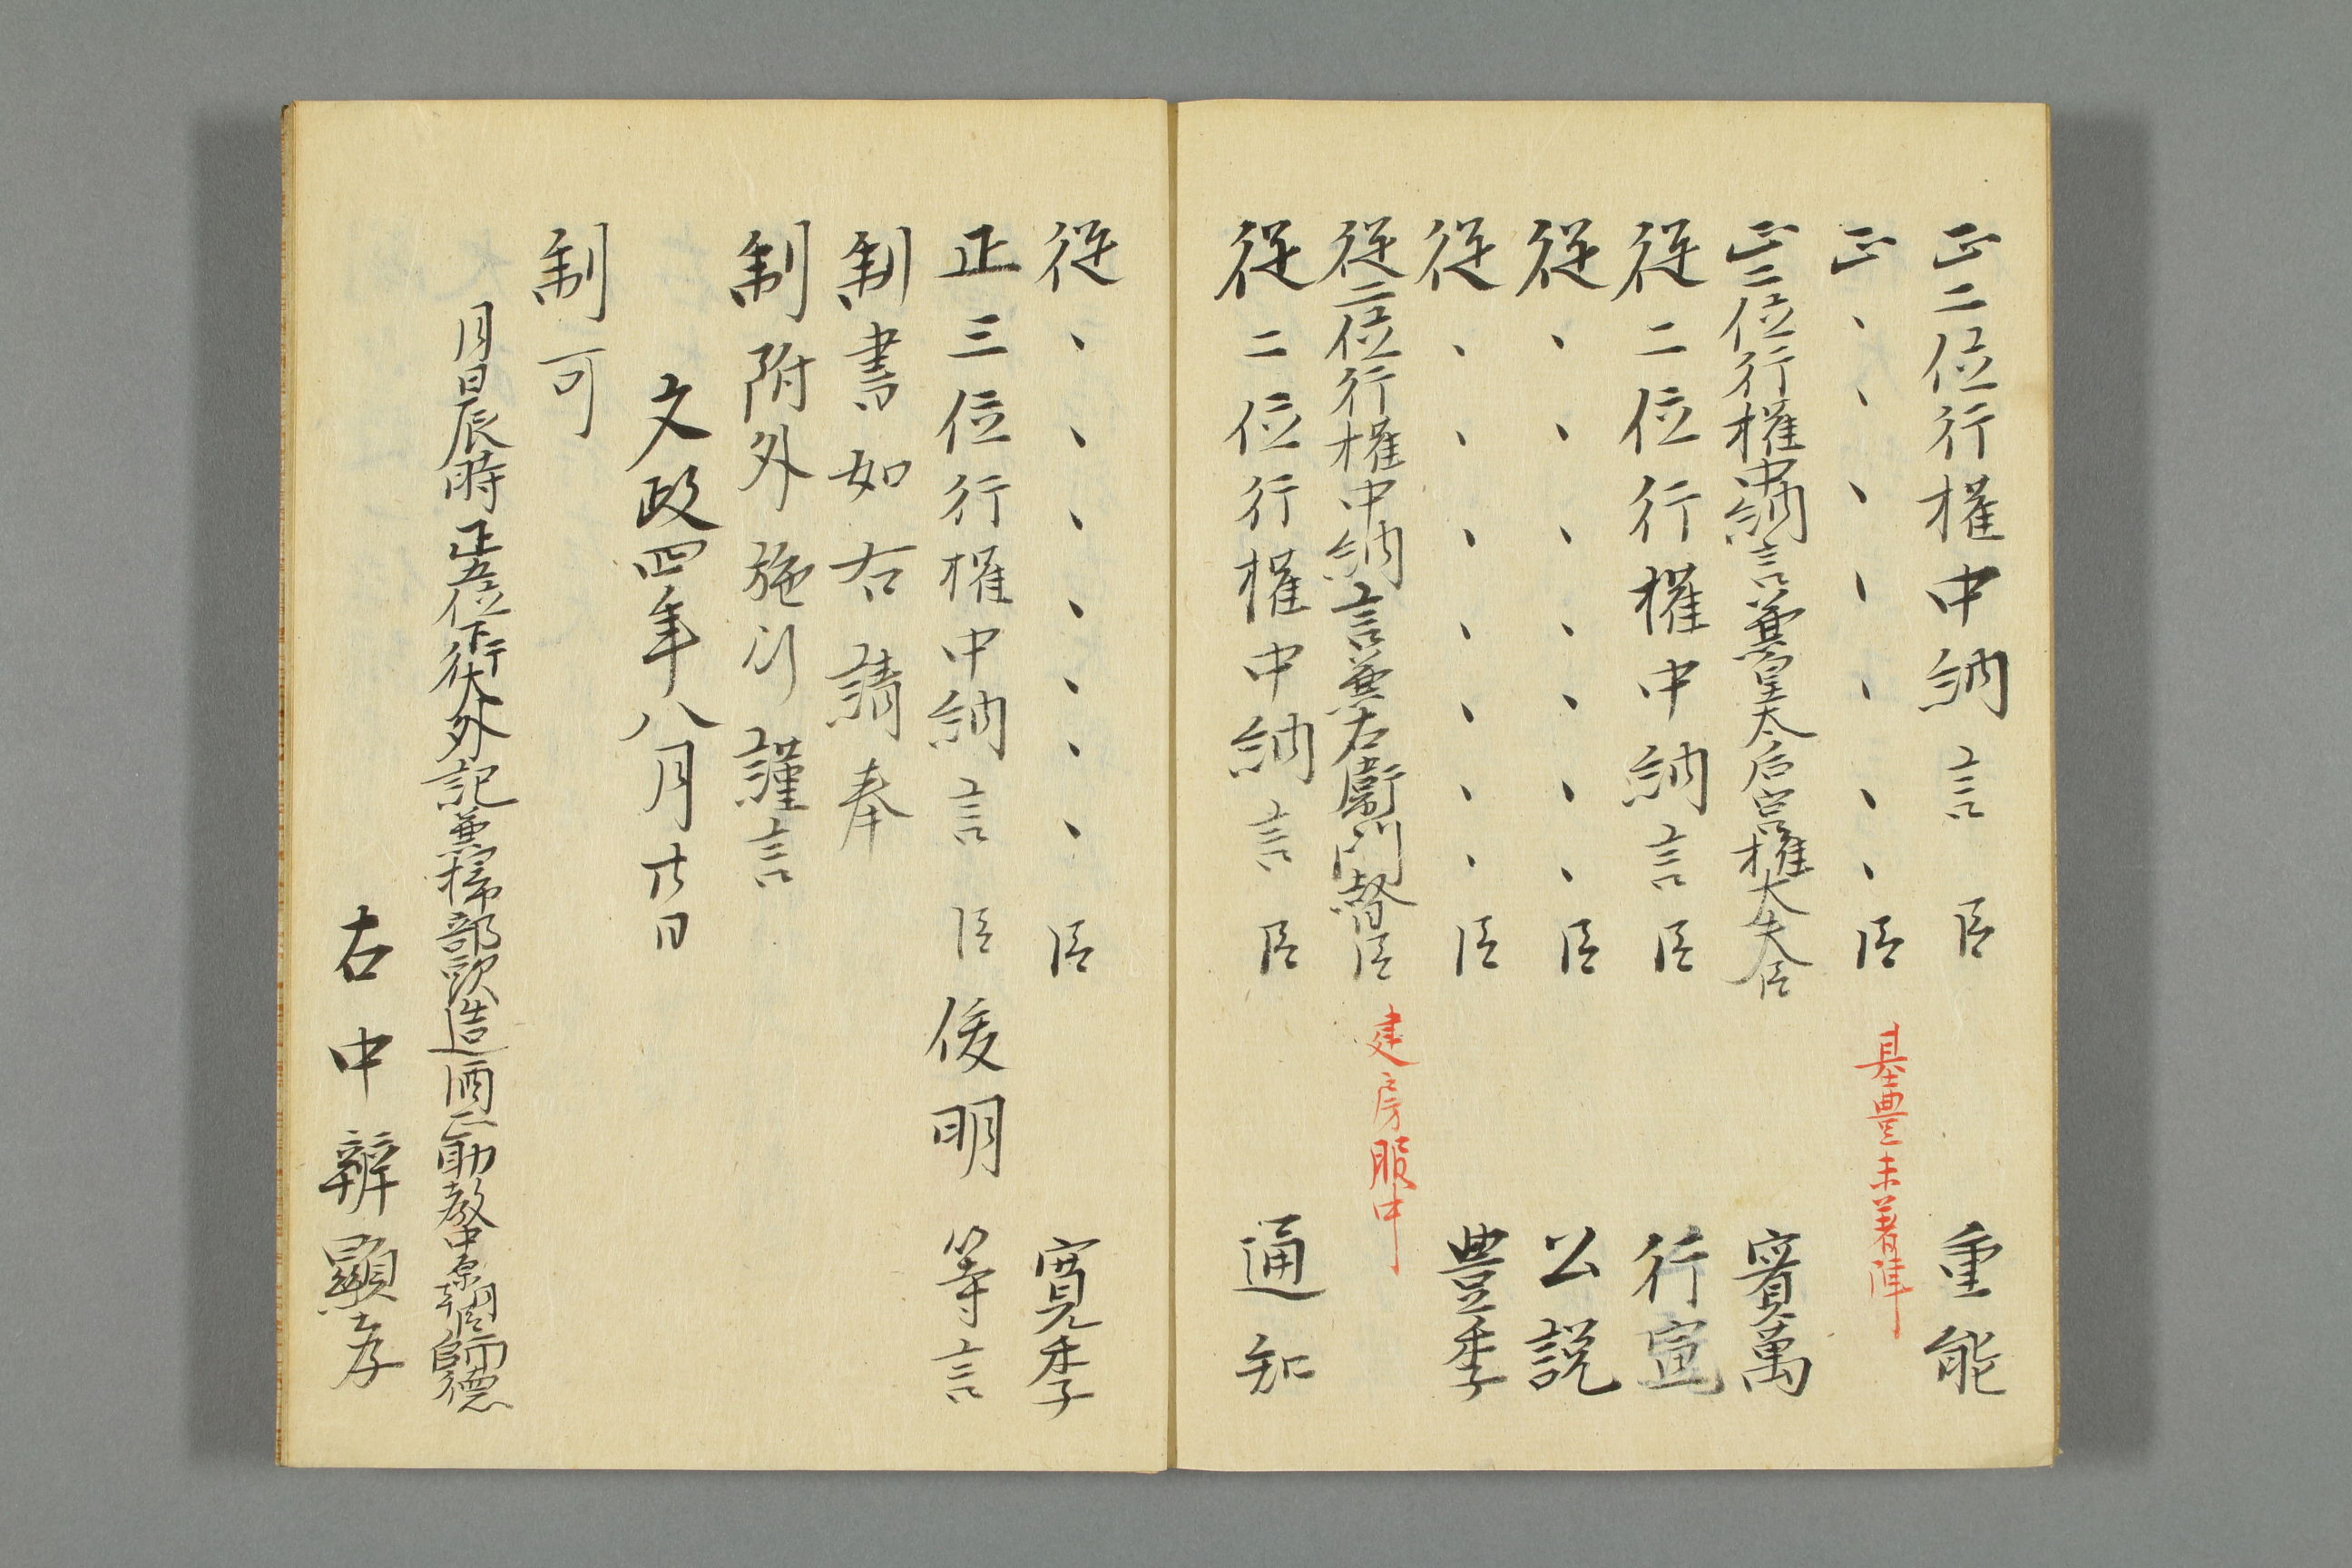 正二位行権中納言臣 重能
正、、、、、、、臣 基豊未著陣
正二位行権中納言兼皇太后宮権大夫臣 實萬
従二位行権中納言臣 行宣
従、、、、、、、臣 公説
従、、、、、、、臣 豊季
従二位行権中納言兼右衛門督臣 建房服中
従二位行権中納言臣 通知
従、、、、、、、臣 寛季
正三位行権中納言臣俊明等言
制書如右請奉
制附外施行謹言
文政四年八月廿日
制可
月日辰時正五位下行大外記兼掃部頭造酒正助教中原朝臣師徳
右中辨顕孝